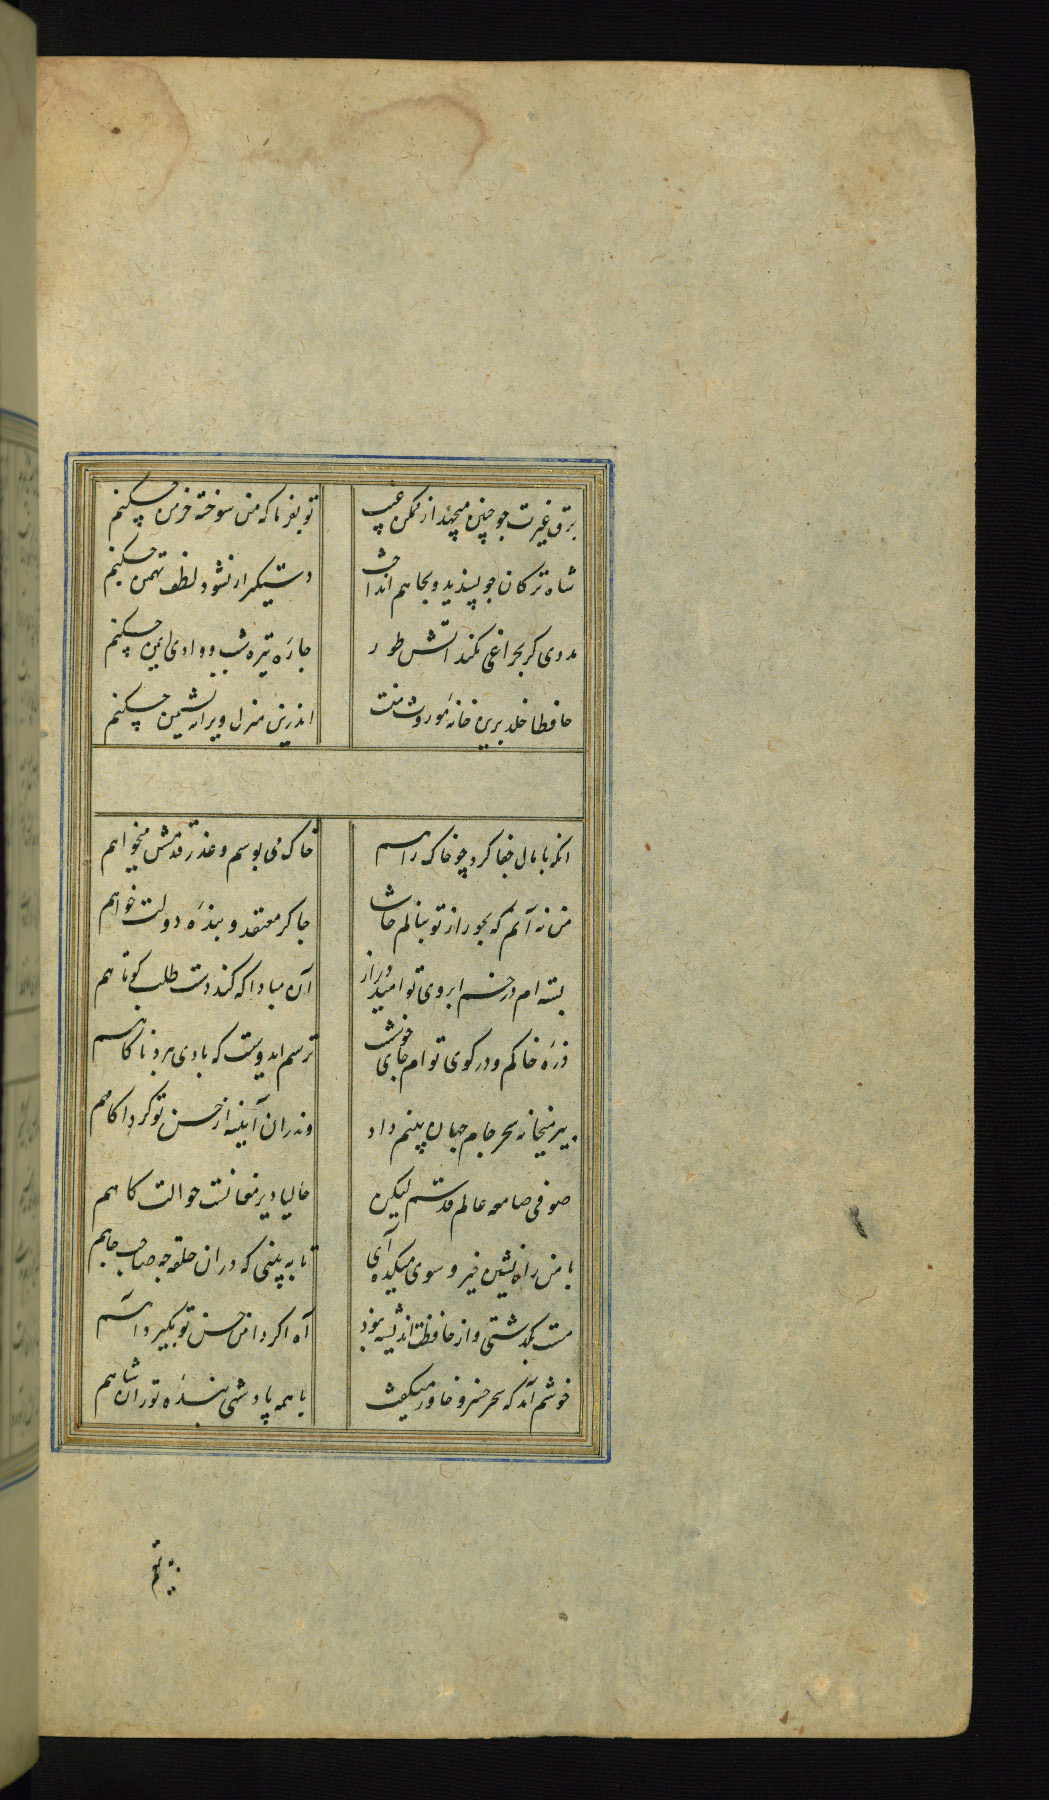 برق غیرت چو چنین میجهد از مکمن غیب تو بفرما که من سوخته خرمن چکنم
شاه ترکان چو پسندید و بچاهم انداخت دستگیر ار نشود لطف تهمتن چکنم
مددی کر بچراغی نکند آتش طور چارهٔ تیره شب وادی ایمن چکنم
حافظا خلد برین خانهٔ موروث منست اندرین منزل ویرانه نشیمن چکنم
آنکه پامال جفا کرد چو خاک راهم خاک می بوسم و عذر قدمش میخواهم
من نه آنم که بجور از تو بنالم حاشا چاکر معتقد و بندهٔ دولت خواهم
بسته ام در خم ابروی تو امید دراز آن مبادا که کند دست طلب کوتاهم
ذرهٔ خاکم و در کوی توام جای خوشست ترسم ای دوست که بادی ببرد ناکاهم
پیر میخانه سحر جام جهان بینم داد وندران آینه از حسن تو کرد آکاهم
صوفی صومعه عالم قدسم لیکن حالیا دیر مغانست حوالت کاهم
با من راه نشین خیز و سوی میکده آی تا به بینی که در ان حلقه چه صاحب جاهم
مست بگذشتی و از حافظت اندیشه نبود آه اکر دامن حسن تو بگیرد آهم
خوشم آمد که سحر خسرو خاور میگفت با همه پادشهی بندهٔ توران شاهم